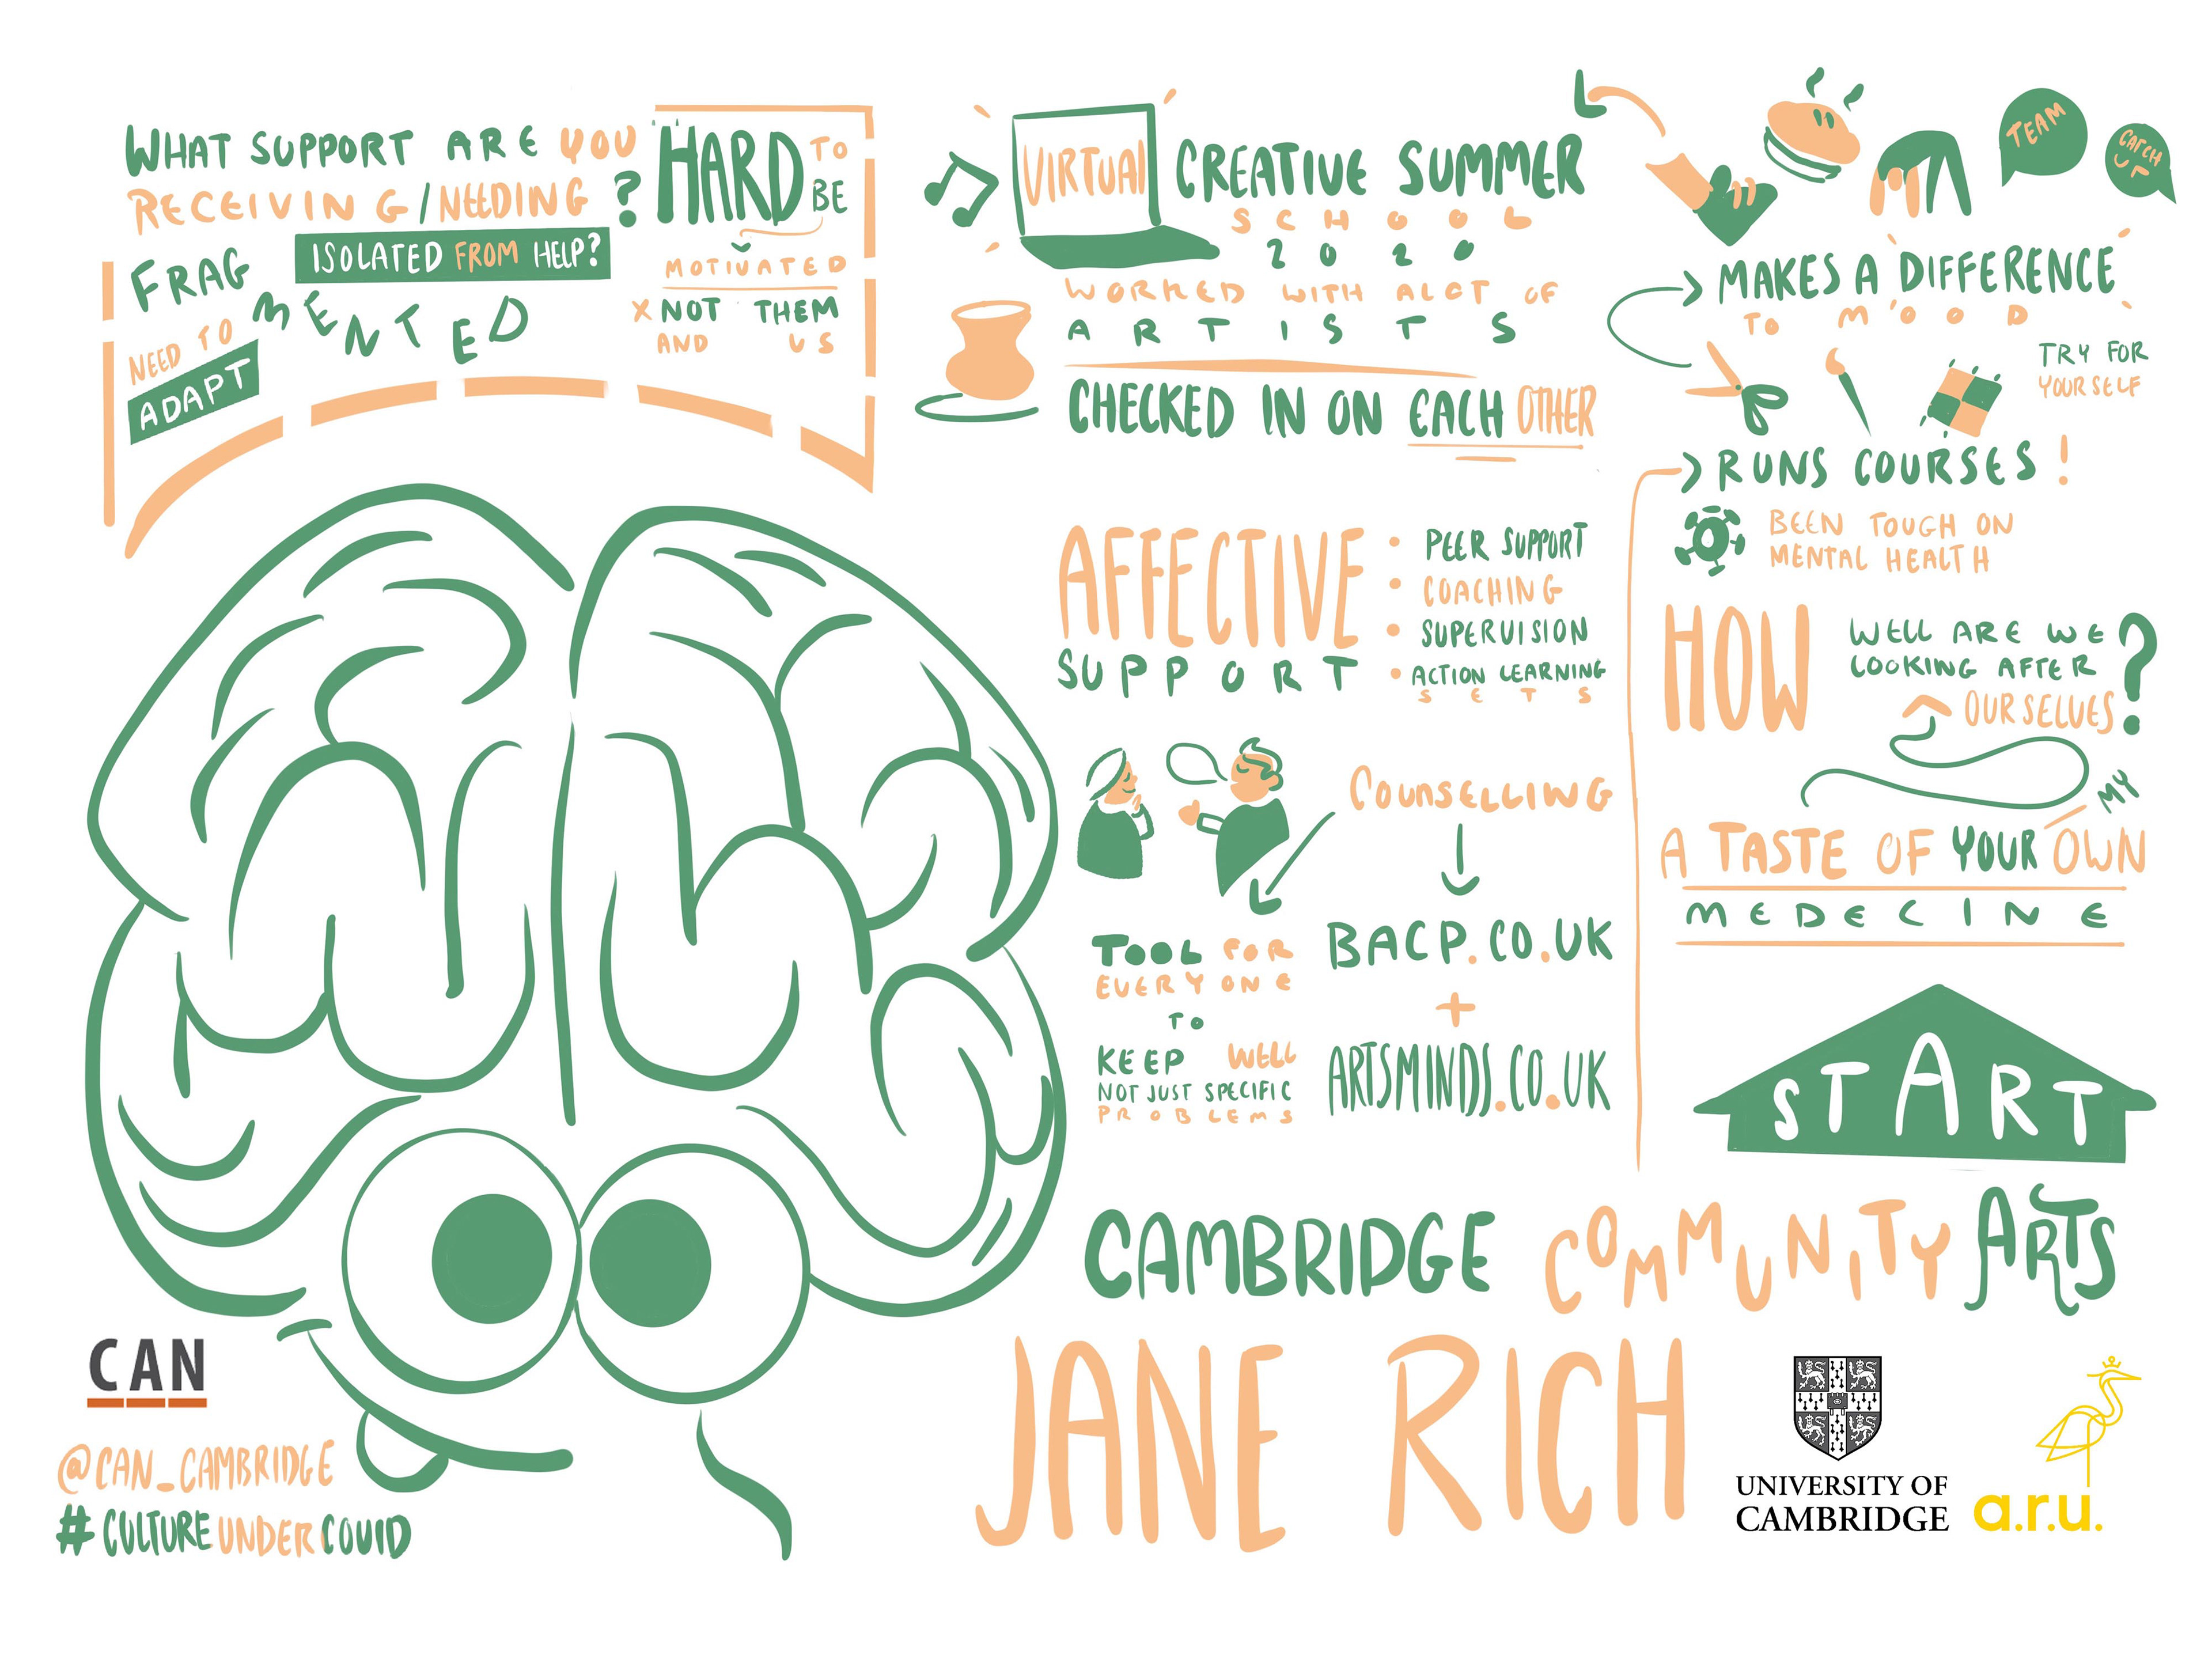 WHAT SUPPORT ARE YOU
RECEIVING/NEEDING ?
ISOLATED FROM HELP?
FRAGMENTED
NEED TO
ADAPT
HARD TO
BE
MOTIVATED
X NOT THEM
AND US
VIRTUAL CREATIVE SUMMER
SCHOOL
2020
WORKED WITH ALOT OF
ARTISTS
CHECKED IN ON EACH OTHER
TEAM
CATCH
UP
MAKES A DIFFERENCE
TO MOOD
TRY FOR
YOURSELF
RUNS COURSES!
BEEN TOUGH ON
MENTAL HEALTH
AFFECTIVE
SUPPORT
• PEER SUPPORT
• COACHING
• SUPERVISION
• ACTION LEARNING
SETS
COUNSELLING
BACP.CO.UK
+
ARTSMINDS.CO.UK
TOOL FOR
EVERYONE
TO
KEEP WELL
NOT JUST SPECIFIC
PROBLEMS
HOW WELL ARE WE
LOOKING AFTER
OURSELVES?
MY
A TASTE OF YOUR OWN
MEDECINE
START
CAMBRIDGE COMMUNITY ARTS
JANE RICH
CAN
@CAN_CAMBRIDGE
#CULTUREUNDERCOVID
UNIVERSITY OF
CAMBRIDGE
a.r.u.